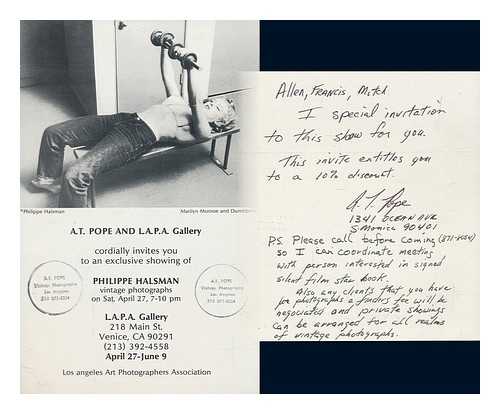 ©Philippe Halsman
Marilyn Monroe and Dumbbells
A.T. POPE AND L.A.P.A. Gallery
cordially invites you
to an exclusive showing of
PHILIPPE HALSMAN
vintage photographs
on Sat, April 27, 7-10 pm
L.A.P.A. Gallery
218 Main St.
Venice, CA 90291
(213) 392-4558
April 27-June 9
Los angeles Art Photographers Association
A.T. POPE
Vintage Photographs
Los Angeles
213 871-8054
A.T. POPE
Vintage Photographs
Los Angeles
213 871-8054
Allen, Francis, Mitch
I special invitation
to this show for you.
This invite entitles you
to a 10% discount.
A. T. Pope
1341 OCEAN AVE
S. Monica 90401
P.S. Please call before coming (871-8054)
so I can coordinate meeting
with person interested in signed
silent film star book.
Also any clients that you have
for photographs a finders fee will be
negociated and private showings
can be arranged for all realms
of vintage photographs.